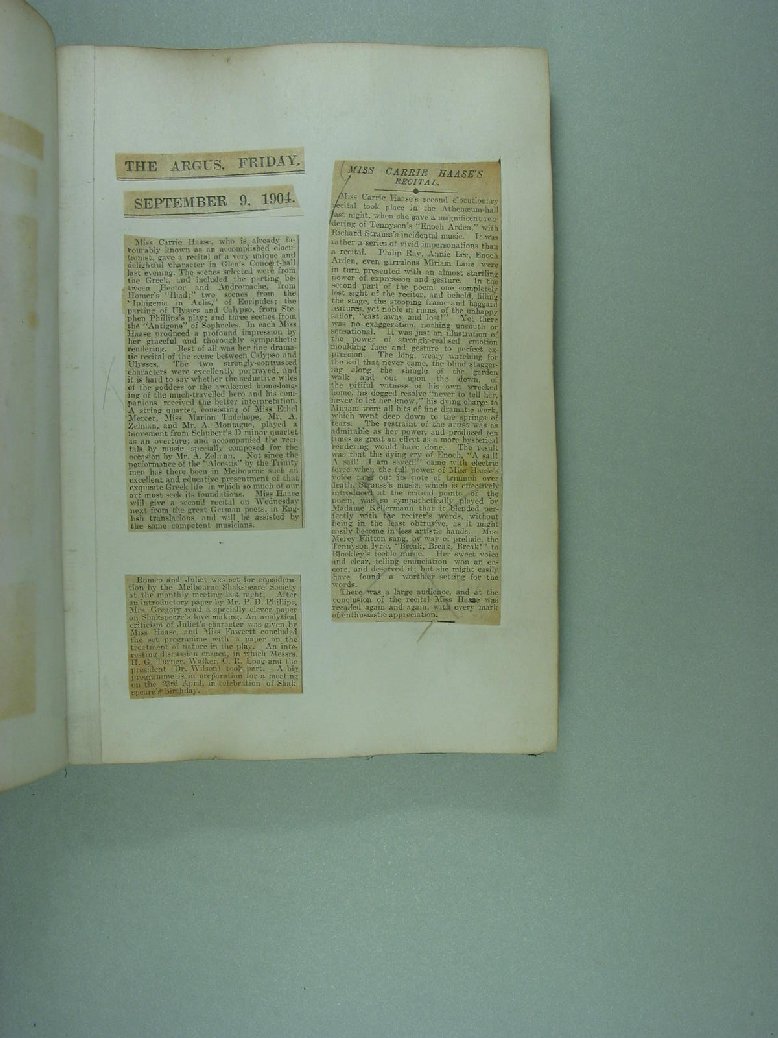 THE ARGUS, FRIDAY,
SEPTEMBER 9, 1904.
Miss Carrie Haase, who is already fa-
vourably known as an accomplished elocu-
tionist, gave a recital of a very unique and
delightful character in Glen's Concert-hall
last evening. The scenes selected were from
the Greek, and included the parting be-
tween Hector and Andromache, from
Homer's "Iliad;" two scenes from the
"Iphigenia in Aulis," of Euripides; the
parting of Ulysses and Calypso, from Ste-
phen Phillips's play; and three scenes from
the "Antigone" of Sophocles. In each Miss
Haase produced a profound impression by
her graceful and thoroughly sympathetic
rendering. Best of all was her fine drama-
tic recital of the scene between Calypso and
Ulysses. The two strongly-contrasted
characters were excellently portrayed, and
it is hard to say whether the seductive wiles
of the goddess or the awakened home-long-
ing of the much-travelled hero and his com-
panions received the better interpretation.
A string quartet, consisting of Miss Ethel
Mercer, Miss Marion Tudehope, Mr. A.
Zelman, and Mr. A. Montague, played a
movement from Schubert's D minor quartet
as an overture, and accompanied the reci-
tals by music specially composed for the
occasion by Mr. A. Zelman. Not since the
performance of the "Alcestis" by the Trinity
men has there been in Melbourne such an
excellent and educative presentment of that
exquisite Greek life in which so much of our
art must seek its foundations. Miss Haase
will give a second recital on Wednesday
next from the great German poets, in Eng-
lish translations, and will be assisted by
the same competent musicians.
Romeo and Juliet, was set for considera-
tion by the Melbourne Shakespeare Society
at the monthly meeting last night. After
an introductory paper by Mr. P. D. Phillips,
Mrs. Gregory read a specially clever paper
on Shakspeare's love making. An analytical
criticism of Juliet's character was given by
Miss Haase, and Miss Fawcett concluded
the set programme with a paper on the
treatment of nature in the play. An inte-
resting discussion ensued, in which Messrs.
H. G. Turner, Walker, C. R. Long and the
president (Dr. Wilson) took part. A big
programme is in preparation for a meeting
on the 23rd April, in celebration of Shak-
speare's birthday.
MISS CARRIE HAASE'S
RECITAL.
Miss Carrie Haase's second elocutionary
recital took place in the Athenæum-hall
last night, when she gave a magnificent ren-
dering of Tennyson's "Enoch Arden," with
Richard Strauss's incidental music. It was
rather a series of vivid impersonations than
a recital. Philip Ray, Annie Lee, Enoch
Arden, even garrulous Miriam Lane were
in turn presented with an almost startling
power of expression and gesture. In the
second part of the poem one completely
lost sight of the reciter, and beheld, filling
the stage, the stooping frame and haggard
features, yet noble in ruins, of the unhappy
sailor, "cast away and lost!" Yet there
was no exaggeration, nothing uncouth or
sensational. It was just an illustration of
the power of strongly-realised emotion
moulding face and gesture to perfect ex-
pression. The long, weary watching for
the sail that never came, the blind stagger-
ing along the shingle of the garden
walk and out upon the down, of
the pitiful witness of his own wrecked
home, his dogged resolve "never to tell her,
never to let her know," his dying charge to
Miriam were all bits of fine dramatic work,
which went deep down to the springs of
tears. The restraint of the artist was as
admirable as her power, and produced ten
times as great an effect as a more hysterical
rendering would have done. The result
was that the dying cry of Enoch, "A sail!
A sail! I am saved!" came with electric
force when the full power of Miss Haase's
voice rang out its note of triumph over
death. Strauss's music, which is effectively
introduced at the critical points of the
poem, was so sympathetically played by
Madame Kellermann that it blended per-
fectly with the reciter's words, without
being in the least obtrusive, as it might
easily become in less artistic hands. Mrs.
Mercy Kitton sang, by way of prelude, the
Tennyson lyric, "Break, Break, Break!" to
Blockley's music. Her sweet voice
and clear, telling enunciation won an en-
core, and deserved it, but she might easily
have found a worthier setting for the
words.
There was a large audience, and at the
conclusion of the recital Miss Haase was
recalled again and again, with every mark
of enthusiastic appreciation.